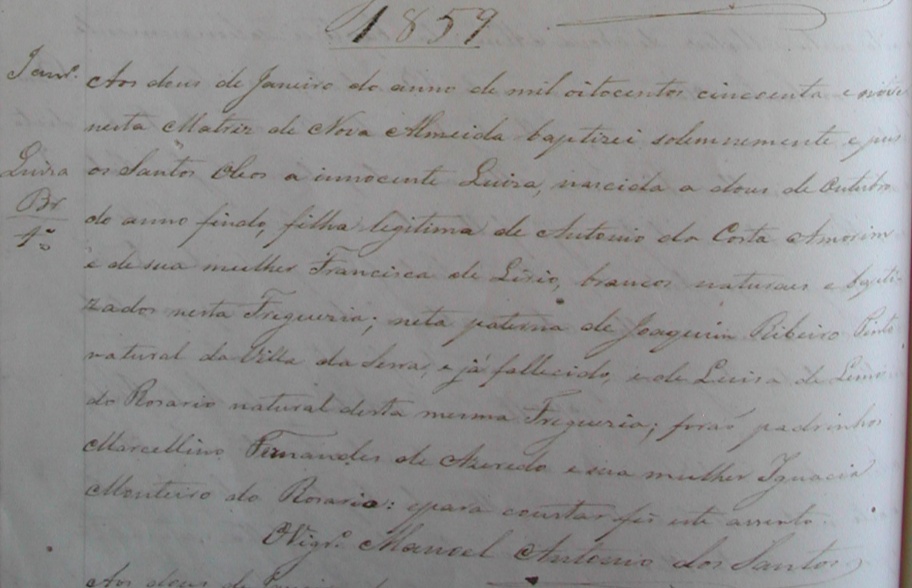 1859
Janrº.
Aos dous de Janeiro do anno de mil oitocentos cincoenta e nove
nesta Matriz de Nova Almeida baptizei solemnemente e pus
Luiza
os Santos Oleos a innocente Luiza, nascida a dous de Outubro
Br
do anno findo, filha legitima de Antonio da Costa Amorim
1º
e de sua mulher Francisca de Lirio, brancos naturaes e bapti-
zados nesta Freguezia; neta paterna de Joaquim Ribeiro Pinto
natural da Villa da Serra, e já fallecido, e de Luiza de
do Rosario natural desta mesma Freguezia; forão padrinhos
Marcellino Fernandes de Azeredo e sua mulher Ignacia
Monteiro do Rosario: e para constar fis este assento.
O Vigrº. Manoel Antonio dos Santos
Aos dous de Janeiro do